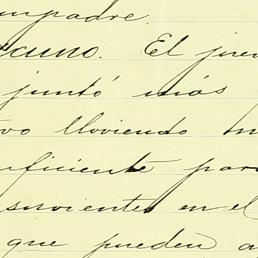 mpadre.
acuno. El jue
juntó más
vo lloviendo m
uficiente para
sirvientes en el
que pueden a